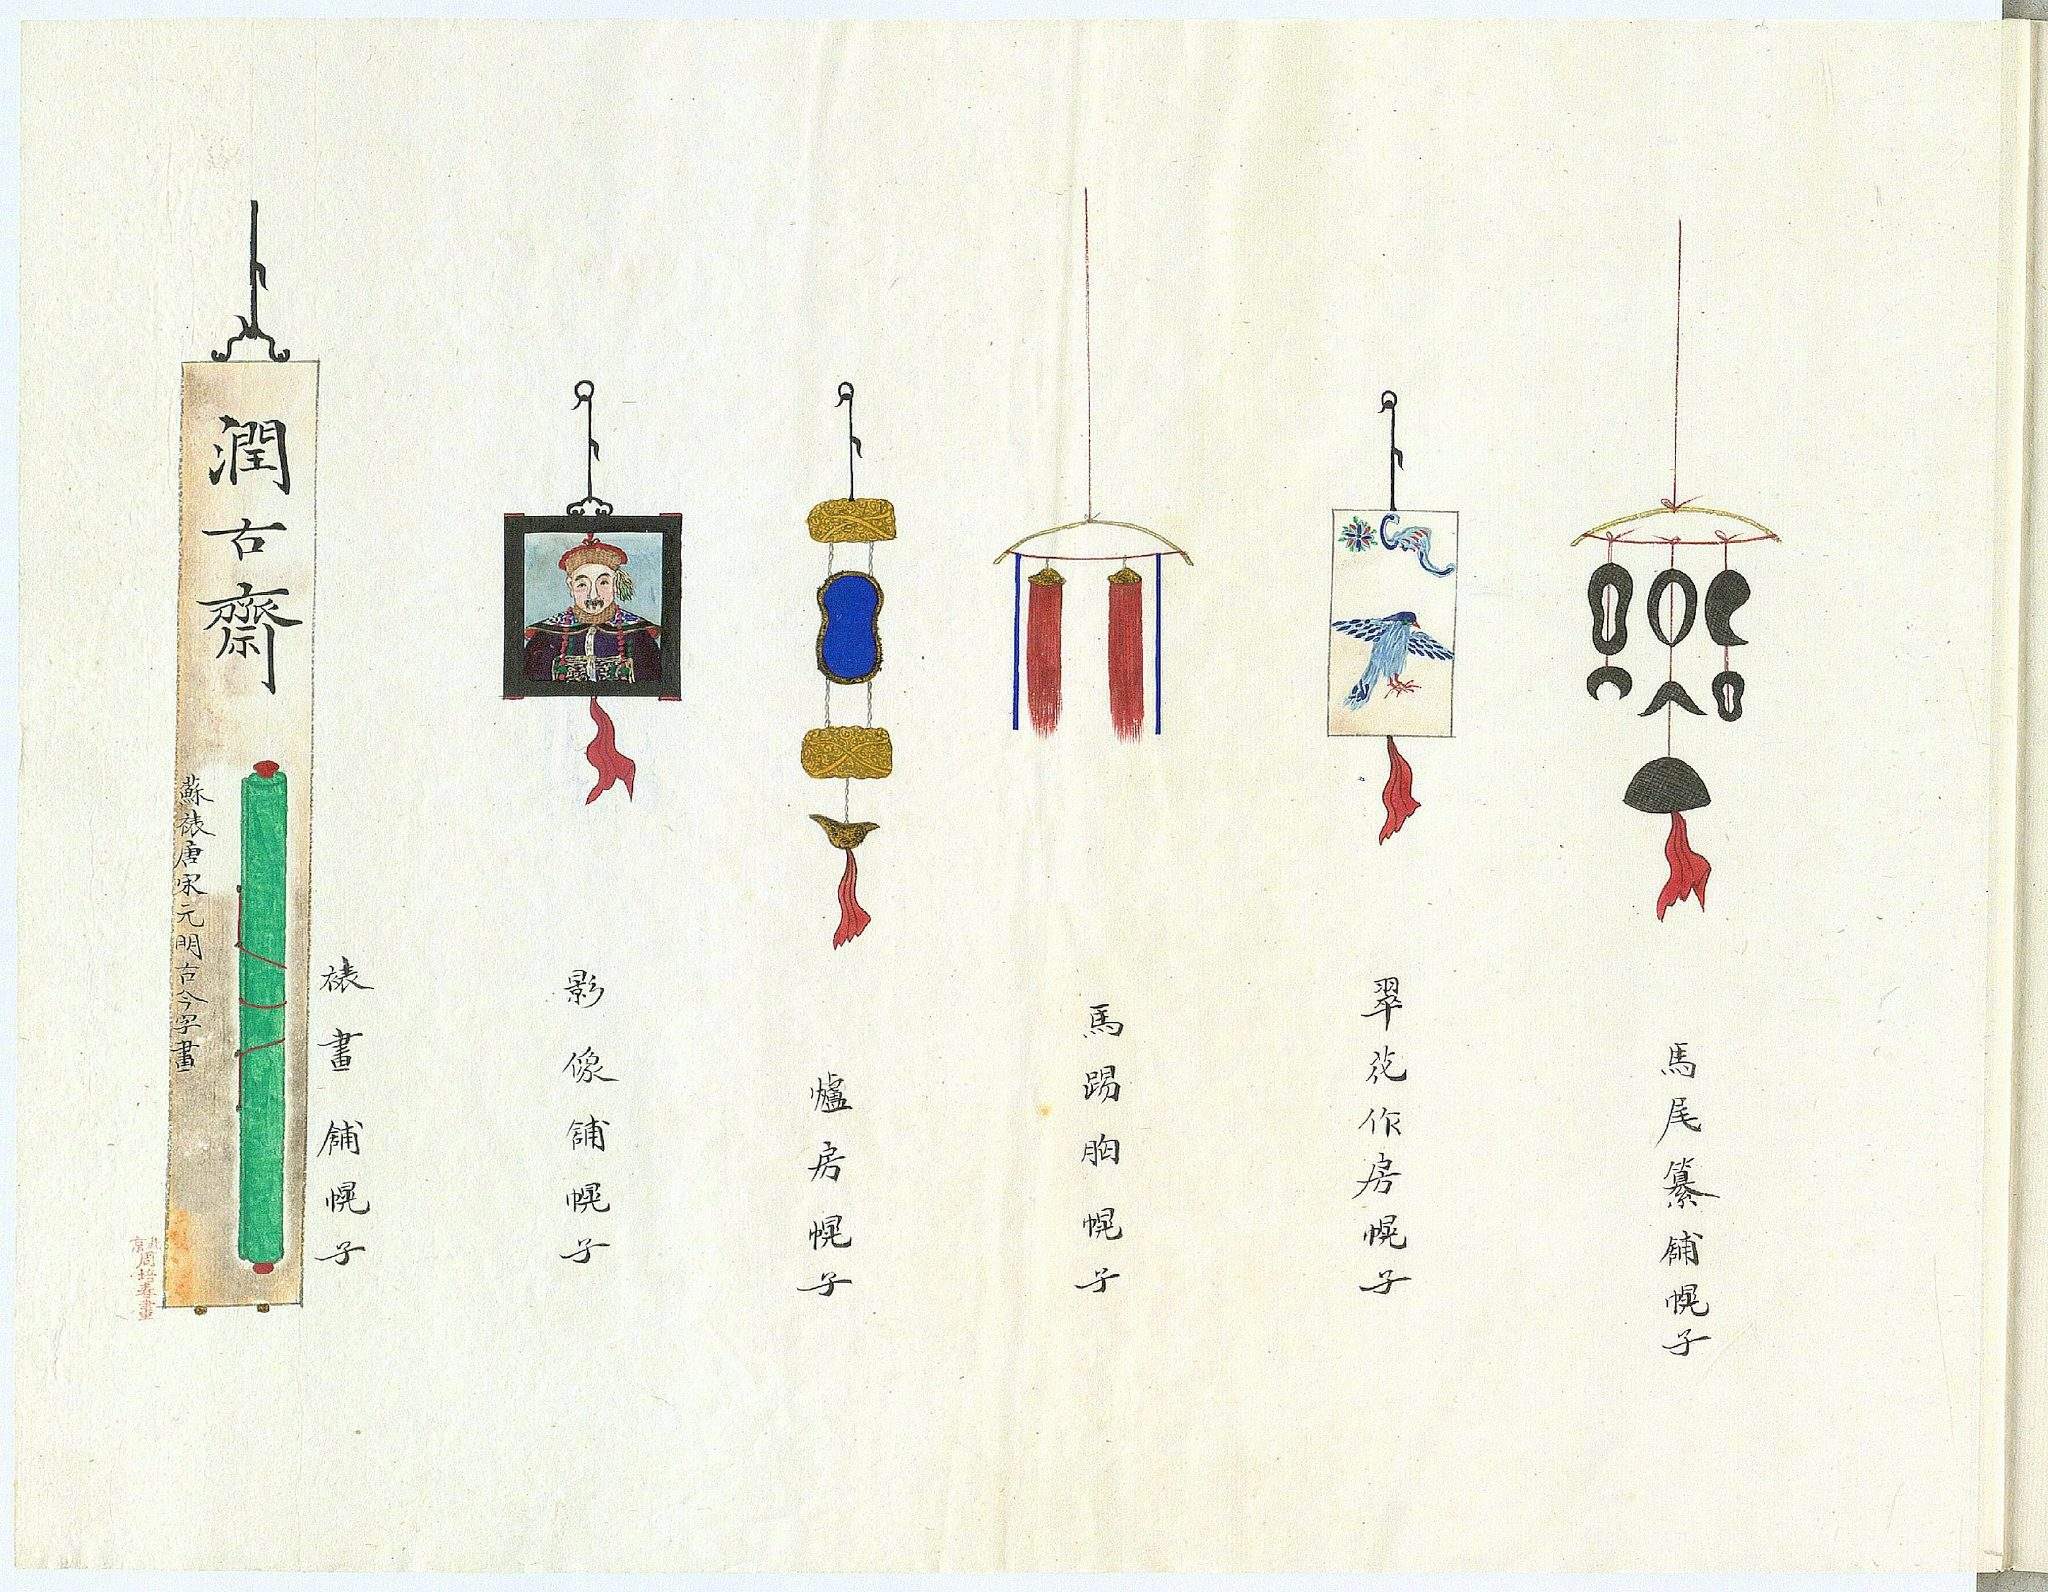 馬尾纂舖幌子
翠花作房幌子
馬踢胸幌子
爐房幌子
影像舖幌子
裱畫舖幌子
潤古齋
蘇裱唐宋元明古今字畫
北京周培春畫